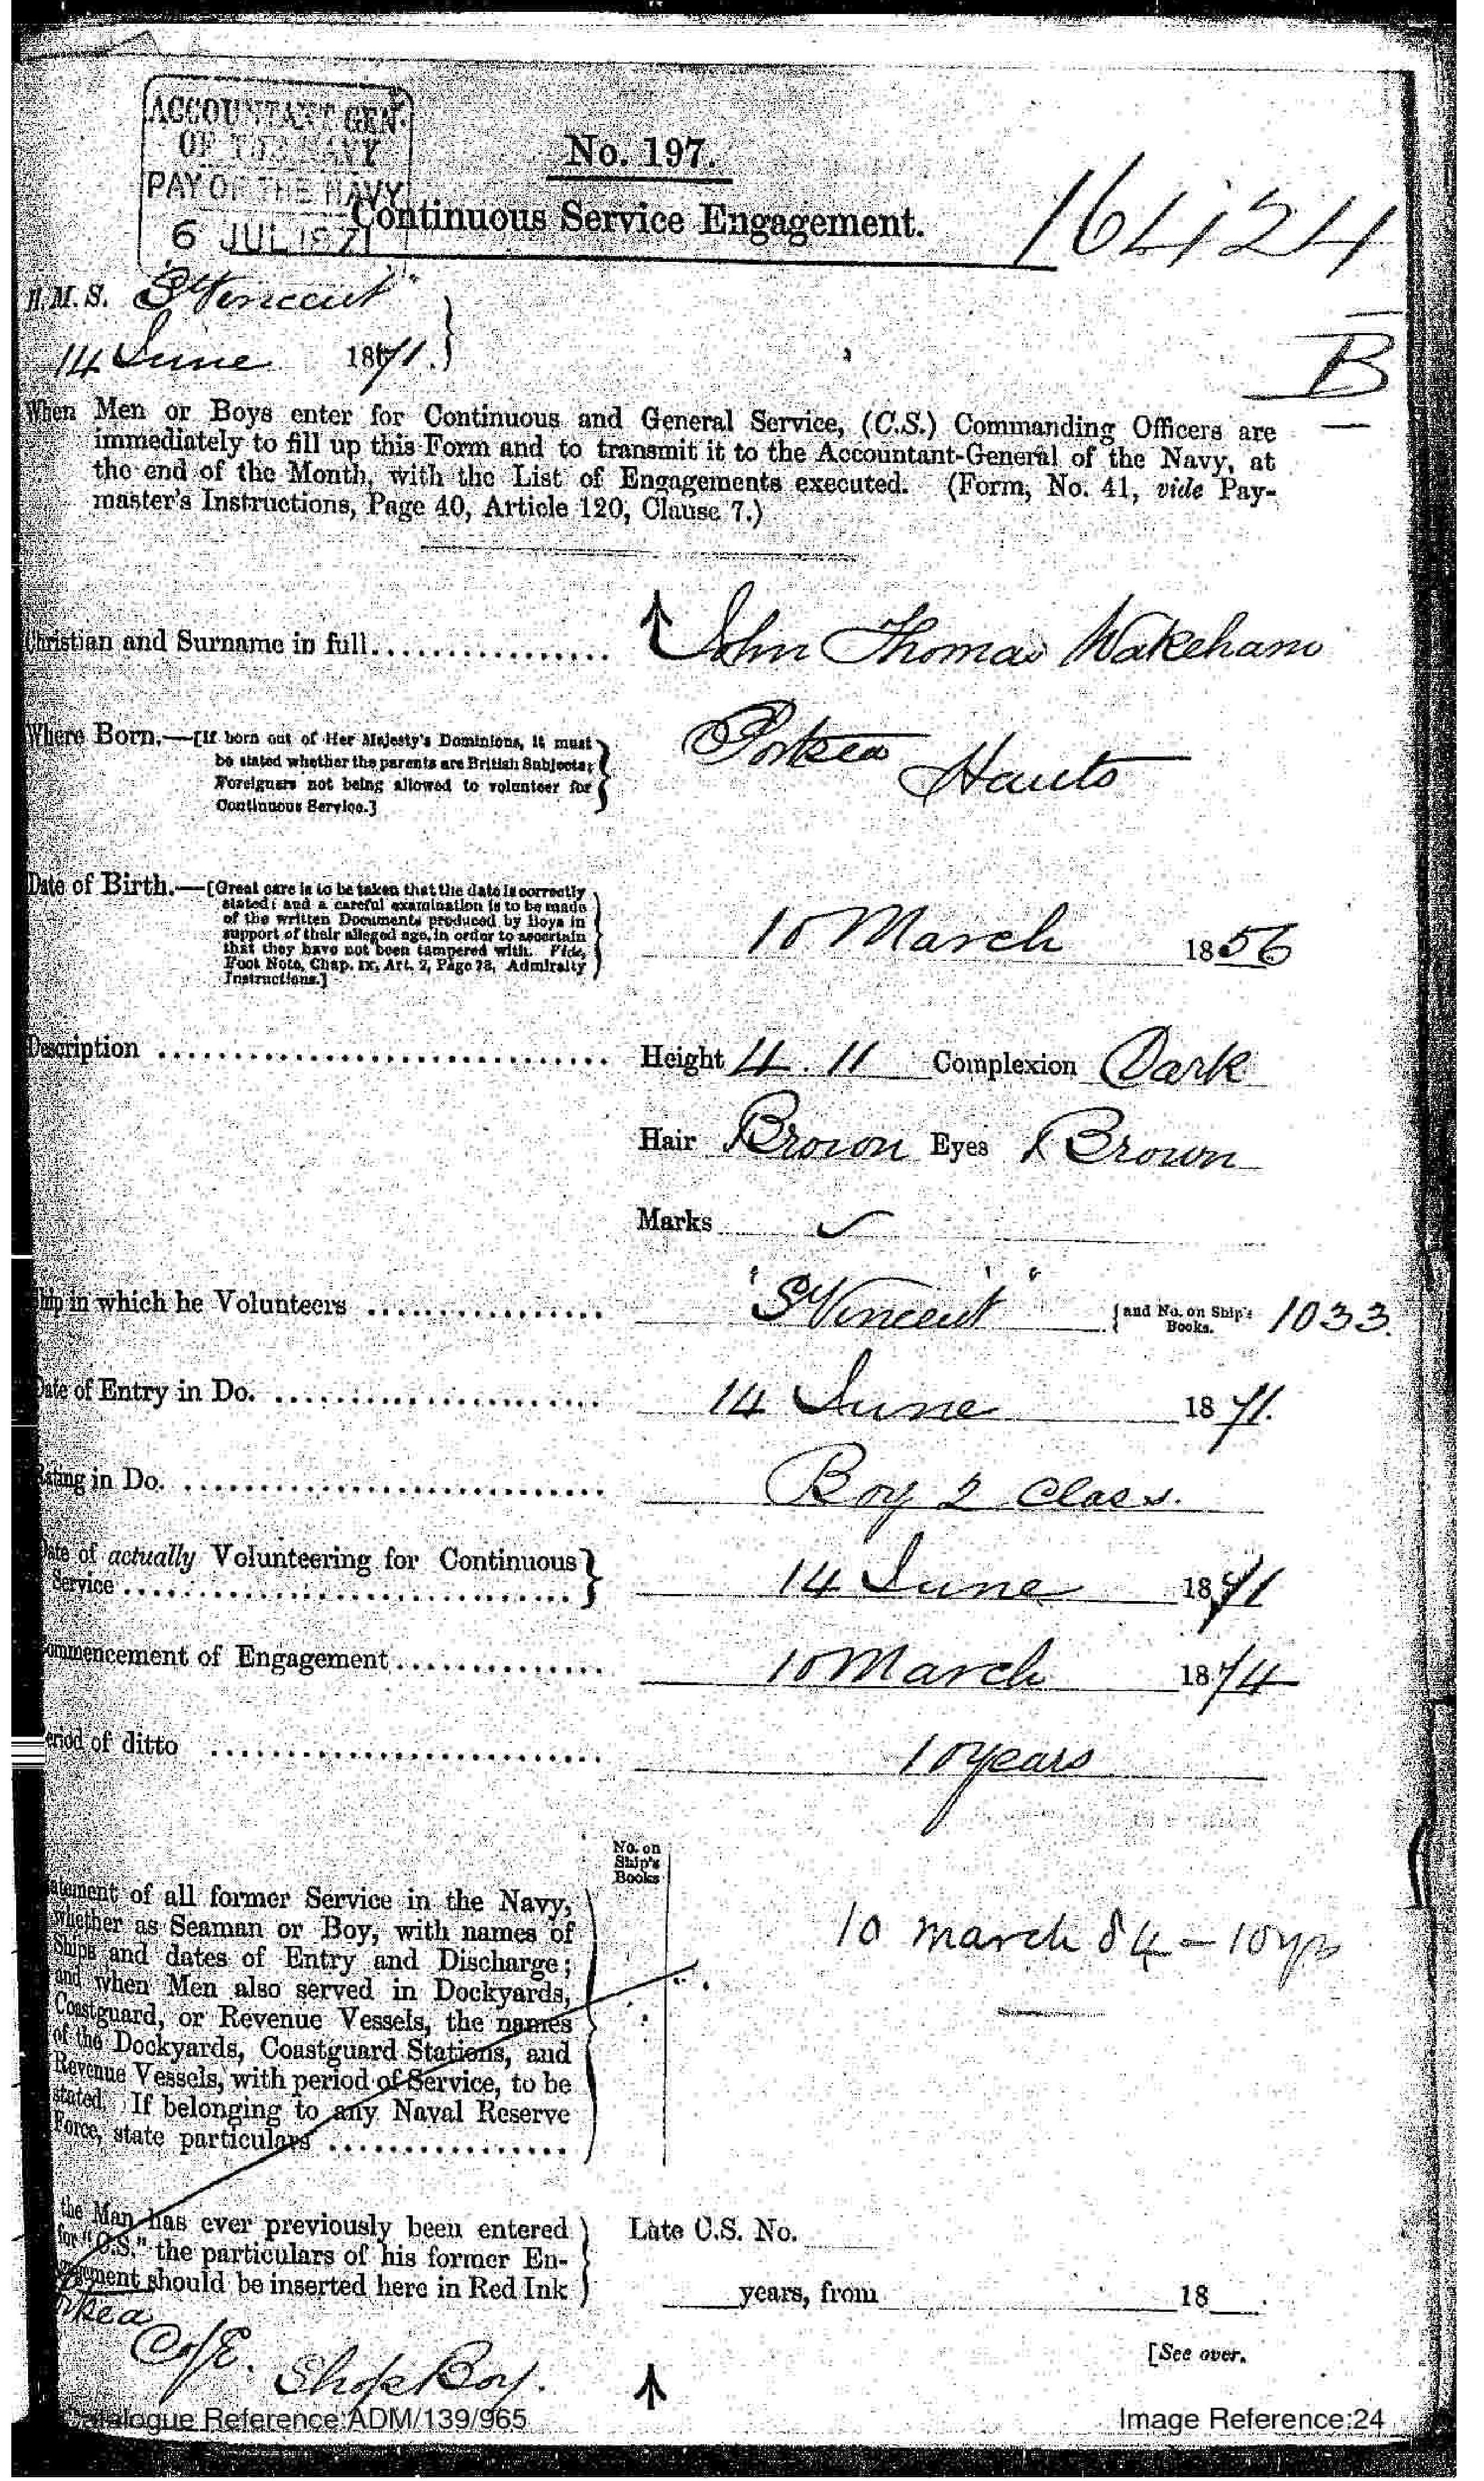 ACCOUNTANT GEN.
OF THE NAVY
PAY OF THE NAVY
6 JUL 1871
No. 197.
Continuous Service Engagement.
16424
B
H.M.S. "St Vincent"
14 June 1871.
When Men or Boys enter for Continuous and General Service, (C.S.) Commanding Officers are
immediately to fill up this Form and to transmit it to the Accountant-General of the Navy, at
the end of the Month, with the List of Engagements executed. (Form, No. 41, vide Pay-
master's Instructions, Page 40, Article 120, Clause 7.)
Christian and Surname in full................ John Thomas Wakeham
Where Born.—[If born out of Her Majesty's Dominions, it must
be stated whether the parents are British Subjects;
Foreigners not being allowed to volunteer for
Continuous Service.]
Portsea Hants
Date of Birth.—[Great care is to be taken that the date is correctly
stated; and a careful examination is to be made
of the written Documents produced by Boys in
support of their alleged age, in order to ascertain
that they have not been tampered with. Vide,
Foot Note, Chap. IX, Art. 2, Page 78, Admiralty
Instructions.]
10 March 1856
Description ............................... Height 4.11 Complexion Dark
Hair Brown Eyes Brown
Marks
Ship in which he Volunteers ................ "St Vincent" {and No. on Ship's Books. 1033.
Date of Entry in Do. ...................... 14 June 1871.
Rating in Do. ............................ Boy 2 Class.
Date of actually Volunteering for Continuous
Service .............................. 14 June 1871
Commencement of Engagement.............. 10 March 1874
Period of ditto ........................... 10 years
No. on
Ship's
Books
Statement of all former Service in the Navy,
whether as Seaman or Boy, with names of
Ships and dates of Entry and Discharge;
and when Men also served in Dockyards,
Coastguard, or Revenue Vessels, the names
of the Dockyards, Coastguard Stations, and
Revenue Vessels, with period of Service, to be
stated. If belonging to any Naval Reserve
Force, state particulars ................
10 March 84 – 10 yrs
the Man has ever previously been entered
for "C.S." the particulars of his former En-
gagement should be inserted here in Red Ink
Late C.S. No.
years, from 18
[See over.
C of E. Shop Boy.
Catalogue Reference:ADM/139/965
Image Reference:24